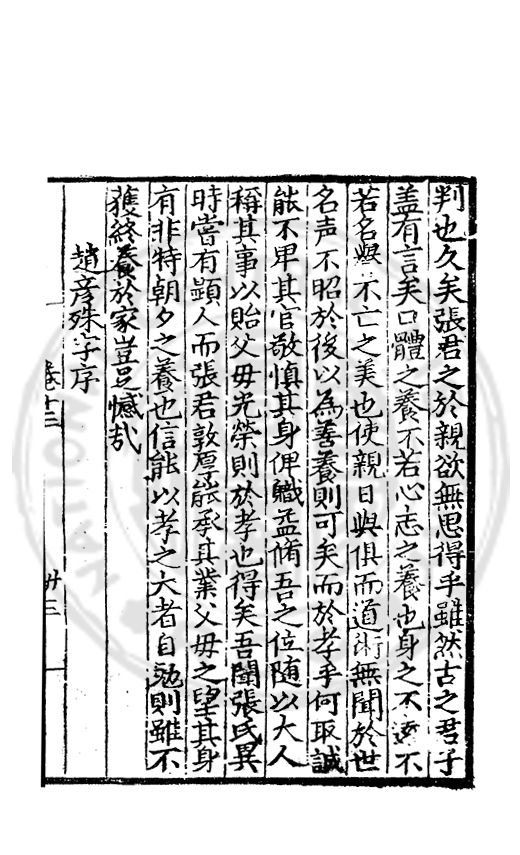 判也久矣張君之於親欲無思得乎雖然古之君子
盖有言矣口體之養不若心志之養也身之不逺不
若名與不亡之美也使親日與俱而道術無聞於世
名声不昭於後以為善養則可矣而於孝乎何取誠
能不卑其官敬慎其身俾軄益脩吾之位随以大人
稱其事以貽父毋光榮則於孝也得矣吾聞張氏異
時嘗有顕人而張君敦厚能承其業父毋之望其身
有非特朝夕之養也信能以孝之大者自勉則雖不
獲終養於家豈足憾哉
趙彦殊字序
卷十三
廿三